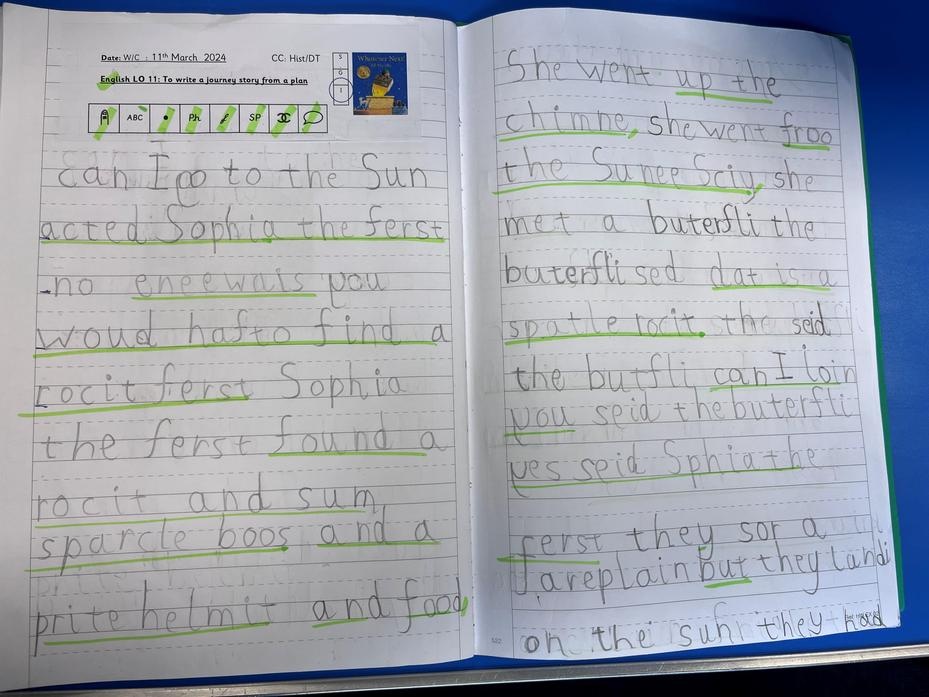 Date: W/C : 11th March 2024 CC: Hist/DT
English LO 11: To write a journey story from a plan
ABC Ph SP
S
G
I
Whatever Next!
can I go to the Sun
acted Sophia the ferst
no eneewais you
woud hafto find a
rocit ferst Sophia
the ferst found a
rocit and sum
sparcle boos and a
prite helmit and food
She went up the
chimne, she went froo
the Sunee Sciy, she
met a buterfli the
buterfli sed dat is a
spatle rocit. the seid
the butfli can I Join
you seid the buterfli
yes seid Sphia the
ferst they sor a
areplain but they landi
on the sun they had